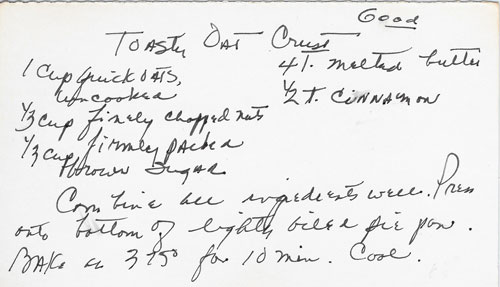 Good
Toasty Oat Crust
1 cup quick oats,
uncooked
1/3 cup finely chopped nuts
1/3 cup firmly packed
brown sugar
4 T. melted butter
1/2 t. cinnamon
Combine all ingredients well. Press
onto bottom of lightly oiled pie pan.
Bake at 375° for 10 min. Cool.